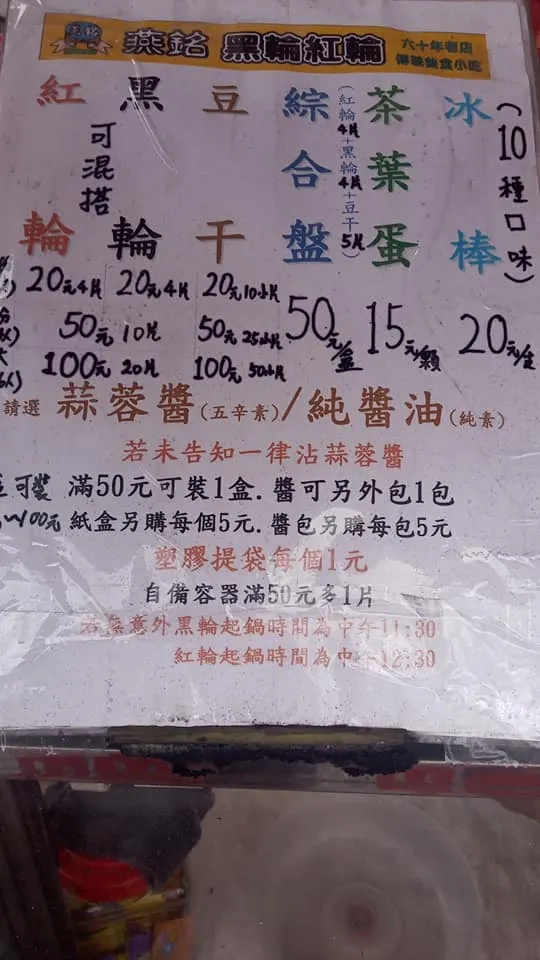 燕銘 黑輪紅輪 六十年老店
傳統美食小吃
紅輪 黑輪 豆干 綜合盤 茶葉蛋 冰棒
可混搭
(紅輪4片+黑輪4片+豆干5片)
(10種口味)
20元4片 20元4片 20元10小片
50元10片 50元25小片 50元/盒 15元/顆 20元/支
100元20片 100元50小片
請選 蒜蓉醬(五辛素)/純醬油(純素)
若未告知一律沾蒜蓉醬
可裝 滿50元可裝1盒.醬可另外包1包
100元 紙盒另購每個5元.醬包另購每包5元
塑膠提袋每個1元
自備容器滿50元多1片
若無意外黑輪起鍋時間為中午11:30
紅輪起鍋時間為中午12:30